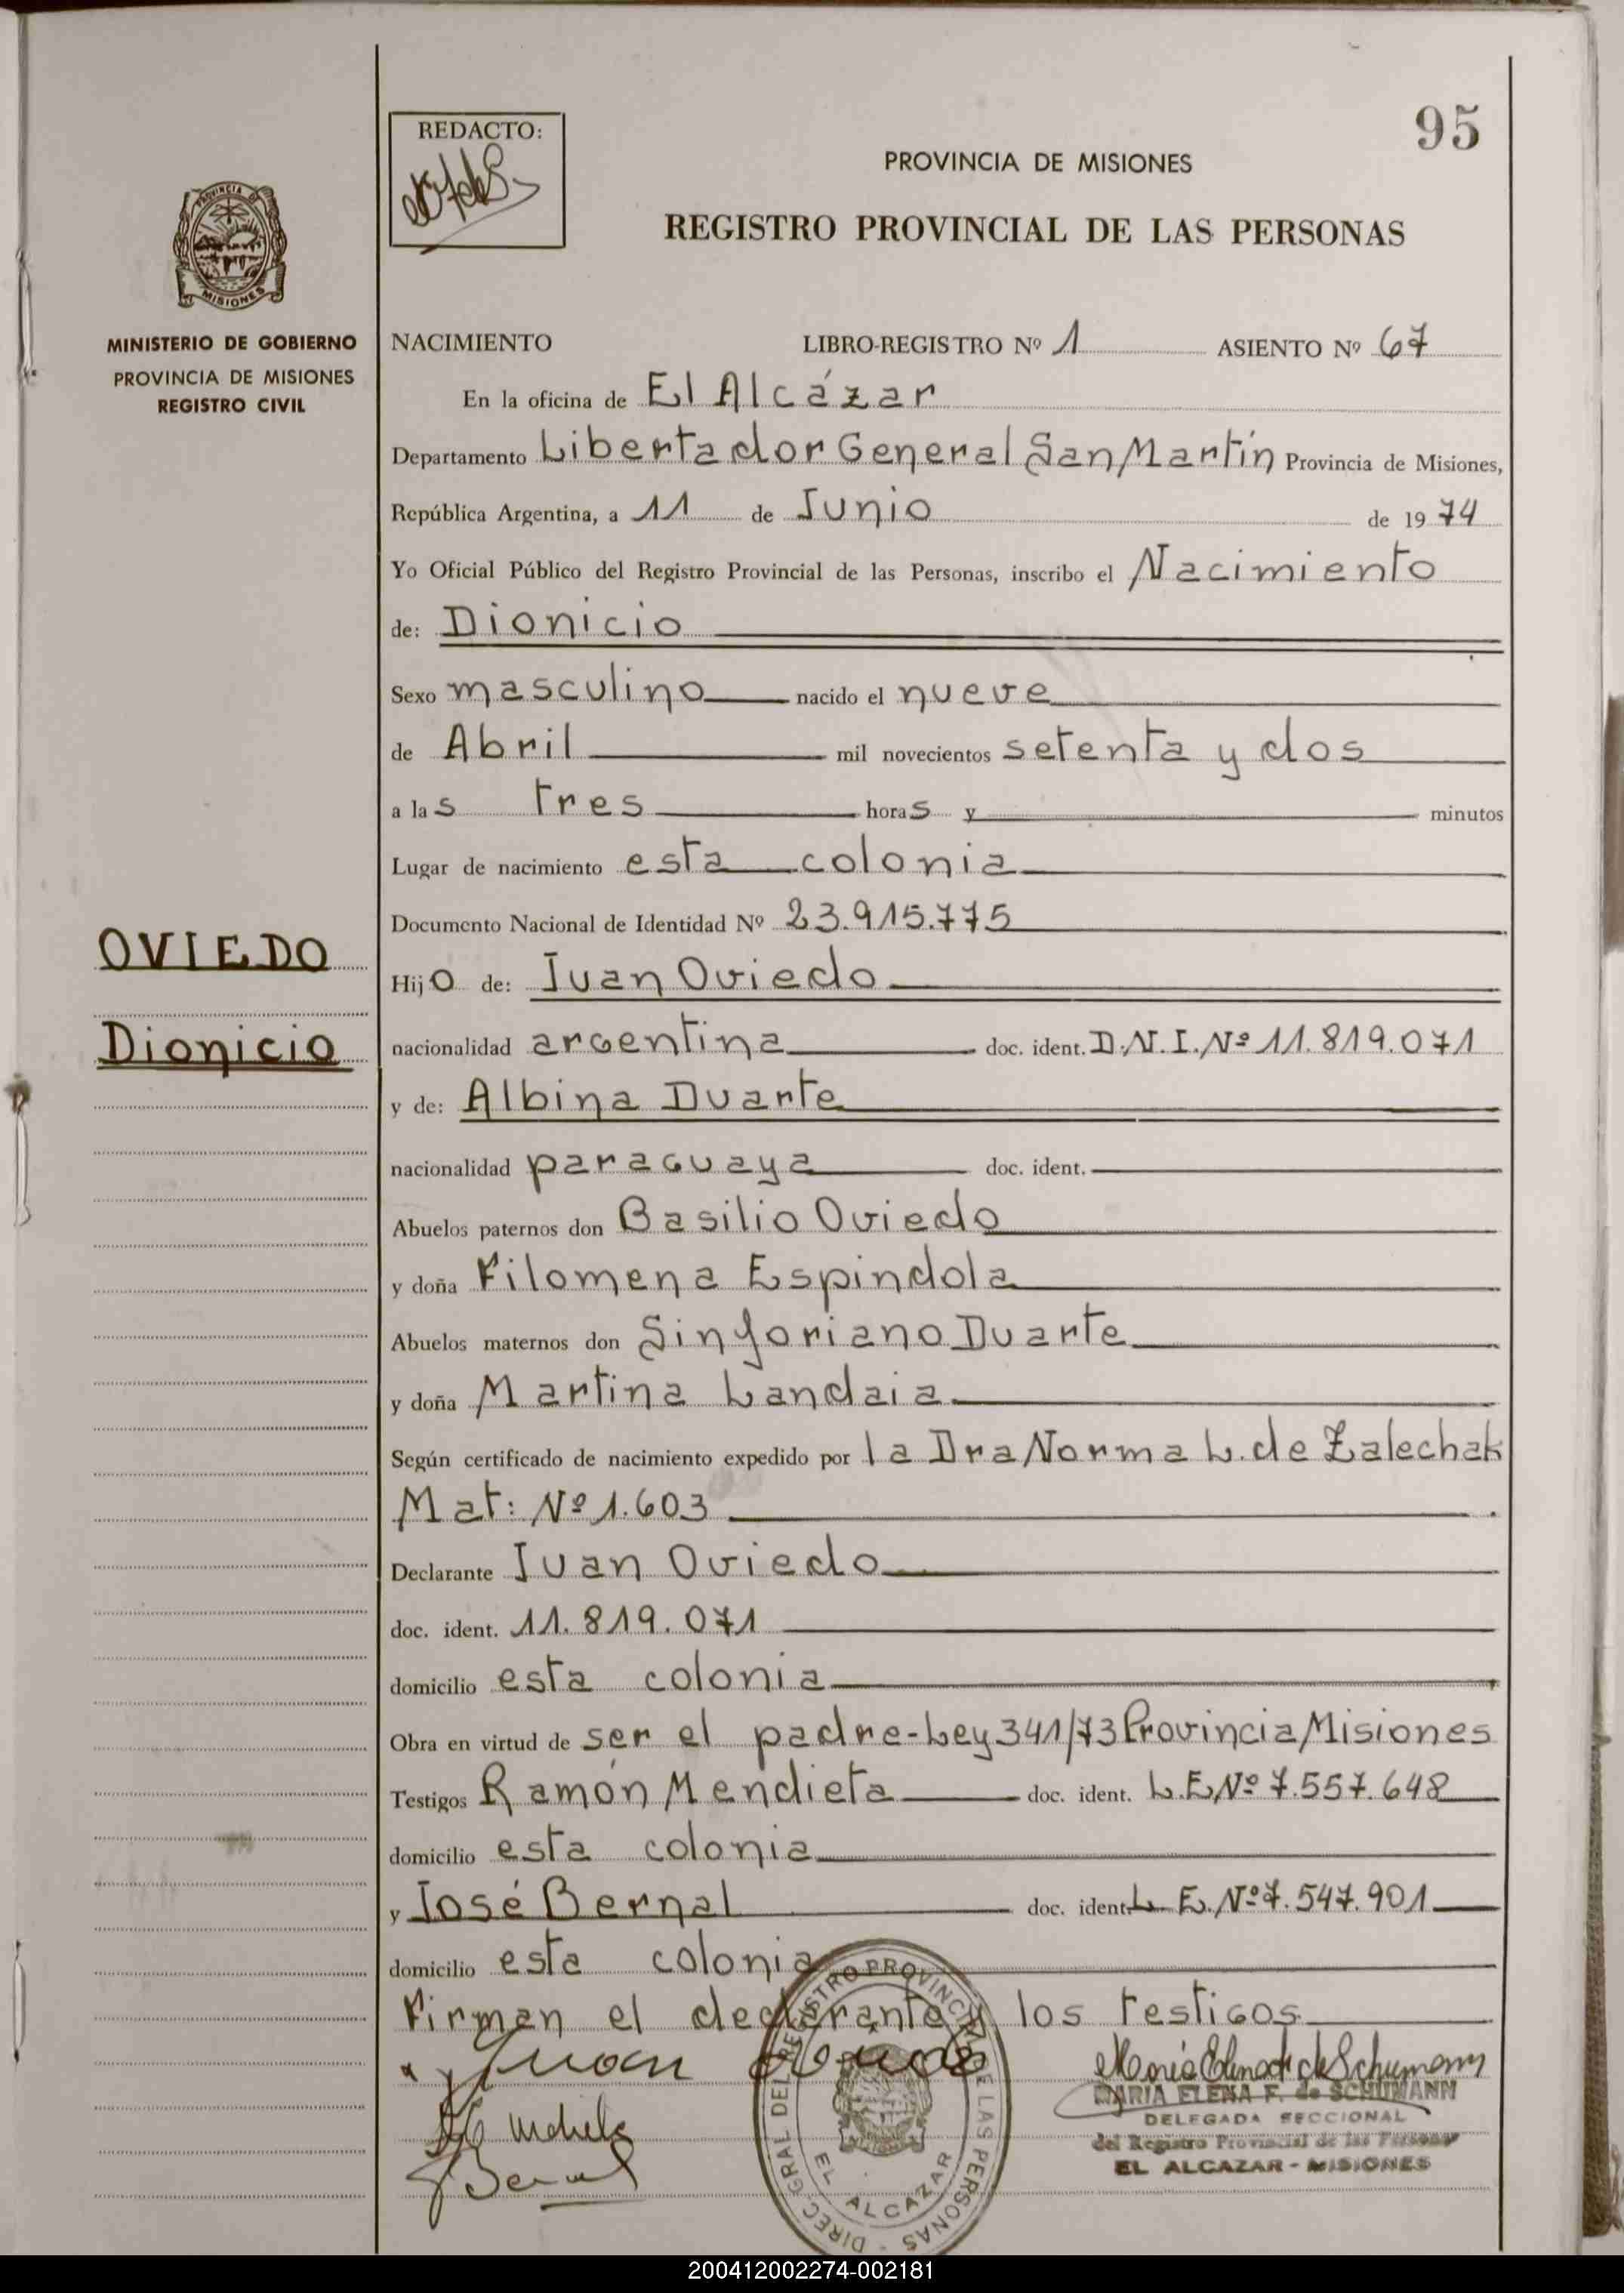 95
REDACTO:
PROVINCIA DE MISIONES
REGISTRO PROVINCIAL DE LAS PERSONAS
PROVINCIA DE
MISIONES
MINISTERIO DE GOBIERNO
PROVINCIA DE MISIONES
REGISTRO CIVIL
NACIMIENTO LIBRO-REGISTRO Nº 1 ASIENTO Nº 67
En la oficina de El Alcázar
Departamento Libertador General San Martín Provincia de Misiones,
República Argentina, a 11 de Junio de 1974
Yo Oficial Público del Registro Provincial de las Personas, inscribo el Nacimiento
de: Dionicio
Sexo masculino nacido el nueve
de Abril mil novecientos setenta y dos
a las tres horas y minutos
Lugar de nacimiento esta colonia
Documento Nacional de Identidad Nº 23.915.775
OVIEDO
Dionicio
Hijo de: Juan Oviedo
nacionalidad argentina doc. ident. D.N.I. Nº 11.819.071
y de: Albina Duarte
nacionalidad paraguaya doc. ident.
Abuelos paternos don Basilio Oviedo
y doña Filomena Espindola
Abuelos maternos don Sinforiano Duarte
y doña Martina Landaia
Según certificado de nacimiento expedido por la Dra Norma L. de Zalechak
Mat: Nº 1.603
Declarante Juan Oviedo
doc. ident. 11.819.071
domicilio esta colonia
Obra en virtud de ser el padre-Ley 341/73 Provincia Misiones
Testigos Ramón Mendieta doc. ident. L.E. Nº 7.557.648
domicilio esta colonia
y José Bernal doc. ident. L.E. Nº 7.547.901
domicilio esta colonia
Firman el declarante y los testigos
Juan
Bernal
DIREC. GRAL DEL REGISTRO PROVINCIAL DE LAS PERSONAS
EL ALCAZAR
MARIA ELENA F. de SCHUMANN
DELEGADA SECCIONAL
del Registro Provincial de las Personas
EL ALCAZAR - MISIONES
200412002274-002181